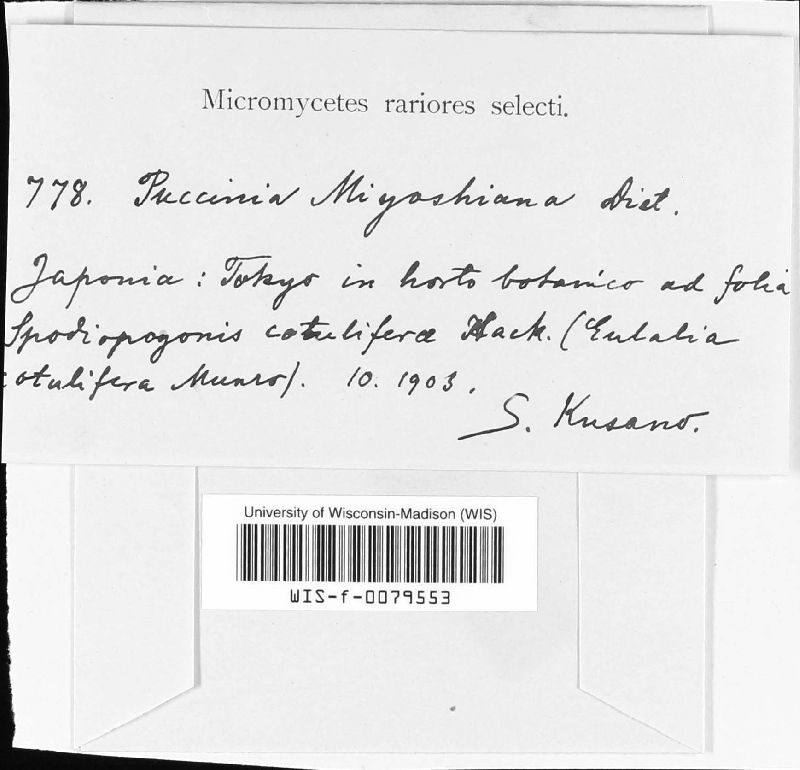 Micromycetes rariores selecti.
778. Puccinia Miyoshiana Diet.
Japonia: Tokyo in horto botanico ad folia
Spodiopogonis cotuliferæ Hack. (Eulalia
cotulifera Munro). 10. 1903.
S. Kusano.
University of Wisconsin-Madison (WIS)
WIS-f-0079553